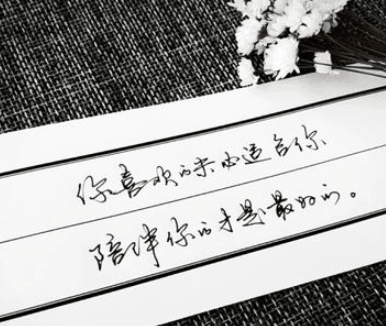 你喜欢的未必适合你
陪伴你的才是最好的。